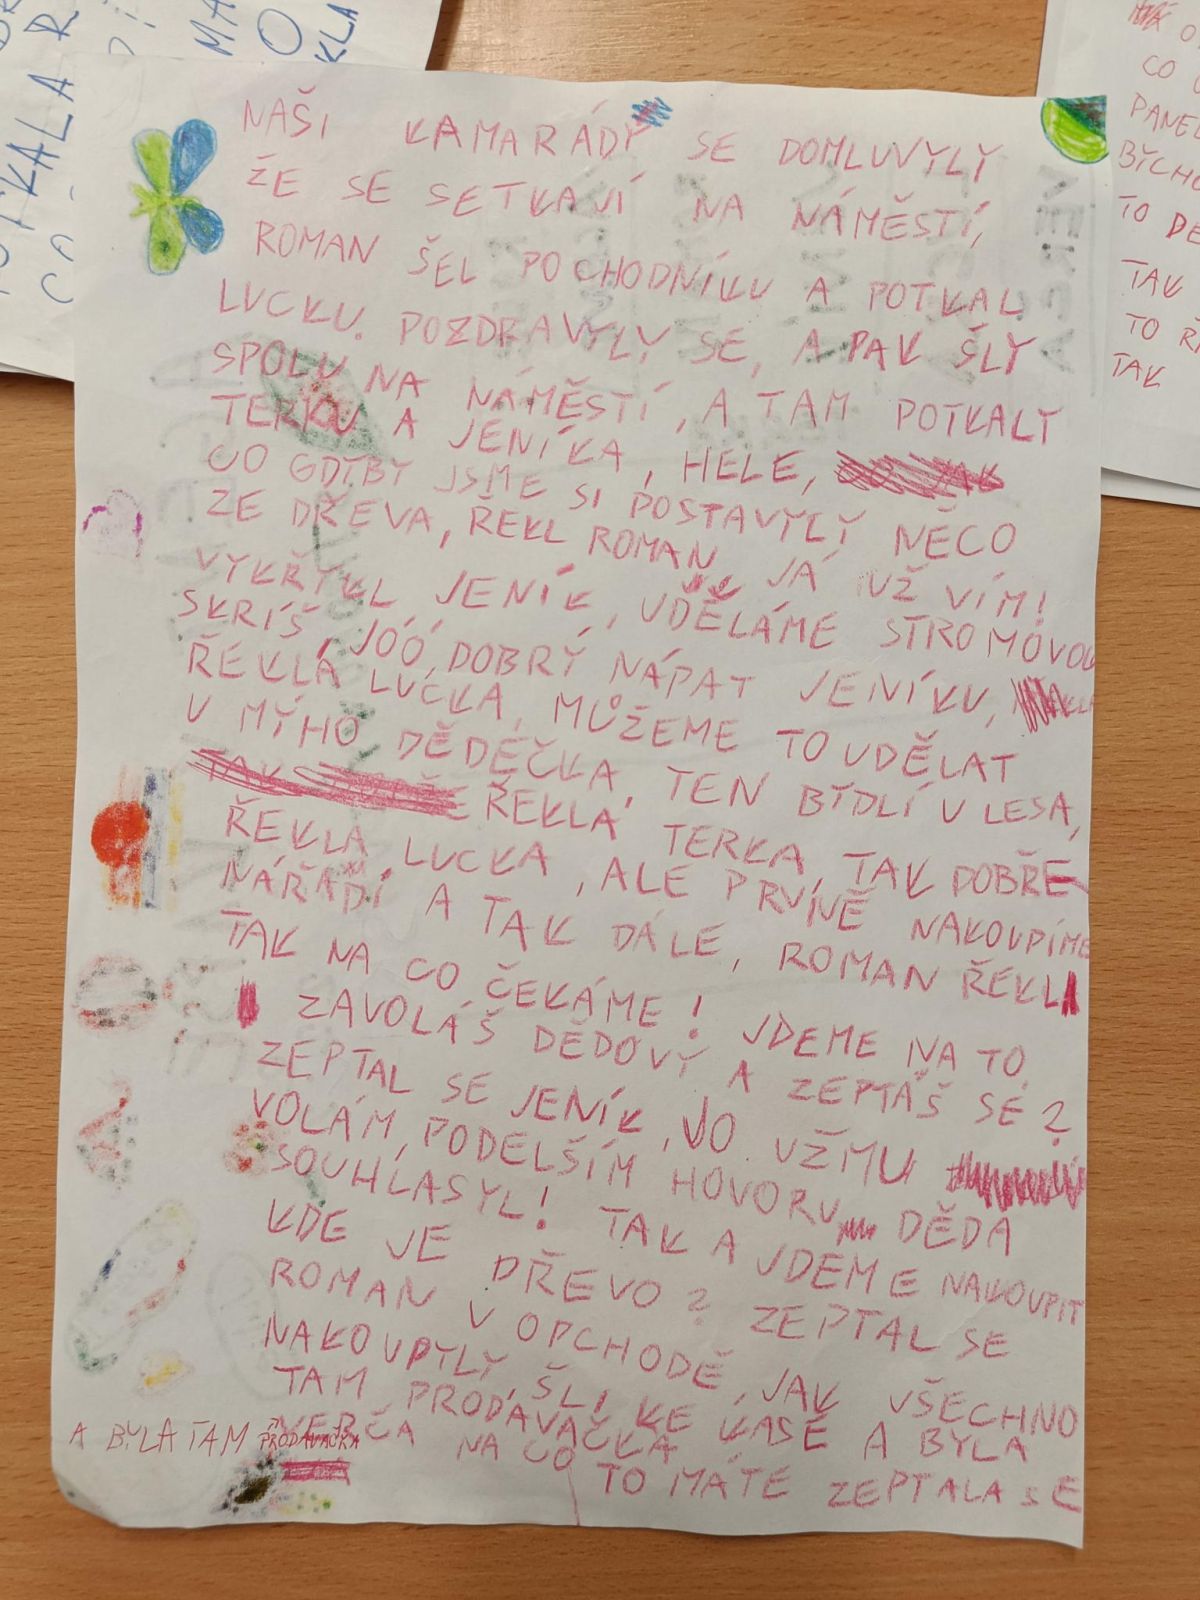 NAŠI KAMARÁDY SE DOMLUVYLY
ŽE SE SETKAJÍ NA NÁMĚSTÍ,
ROMAN ŠEL POCHODNÍKU A POTKAL
LUCKU. POZDRAVYLY SE, A PAK ŠLY
SPOLU NA NÁMĚSTÍ, A TAM POTKALY
TERKU A JENÍKA, HELE,
CO GDYBY JSME SI POSTAVYLY NĚCO
ZE DŘEVA, ŘEKL ROMAN JÁ UŽ VÍM!
VYKŘYKL JENÍK, UDĚLÁME STROMOVOU
SKRÍŠ, JÓÓ, DOBRÝ NÁPAT JENÍKU,
ŘEKLA LUCKA, MŮŽEME TO UDĚLAT
U MÝHO DĚDEČKA, TEN BYDLÍ U LESA,
ŘEKLA TERKA, TAK DOBŘE
ŘEKLA LUCKA, ALE PRVNĚ NAKOUPÍME
NÁŘADÍ A TAK DÁLE, ROMAN ŘEKL
TAK NA CO ČEKÁME! JDEME NA TO,
ZAVOLÁŠ DĚDOVY A ZEPTÁŠ SE?
ZEPTAL SE JENÍK, JO UŽ MU
VOLÁM, PO DELŠÍM HOVORU DĚDA
SOUHLASYL! TAK A JDEME NAKOUPIT
KDE JE DŘEVO? ZEPTAL SE
ROMAN V OPCHODĚ, JAK VŠECHNO
NAKOUPYLY, ŠLI KE KASE A BYLA
TAM PRODAVAČKA
VERČA NA CO TO MÁTE ZEPTALA SE
A BYLA TAM PRODAVAČKA